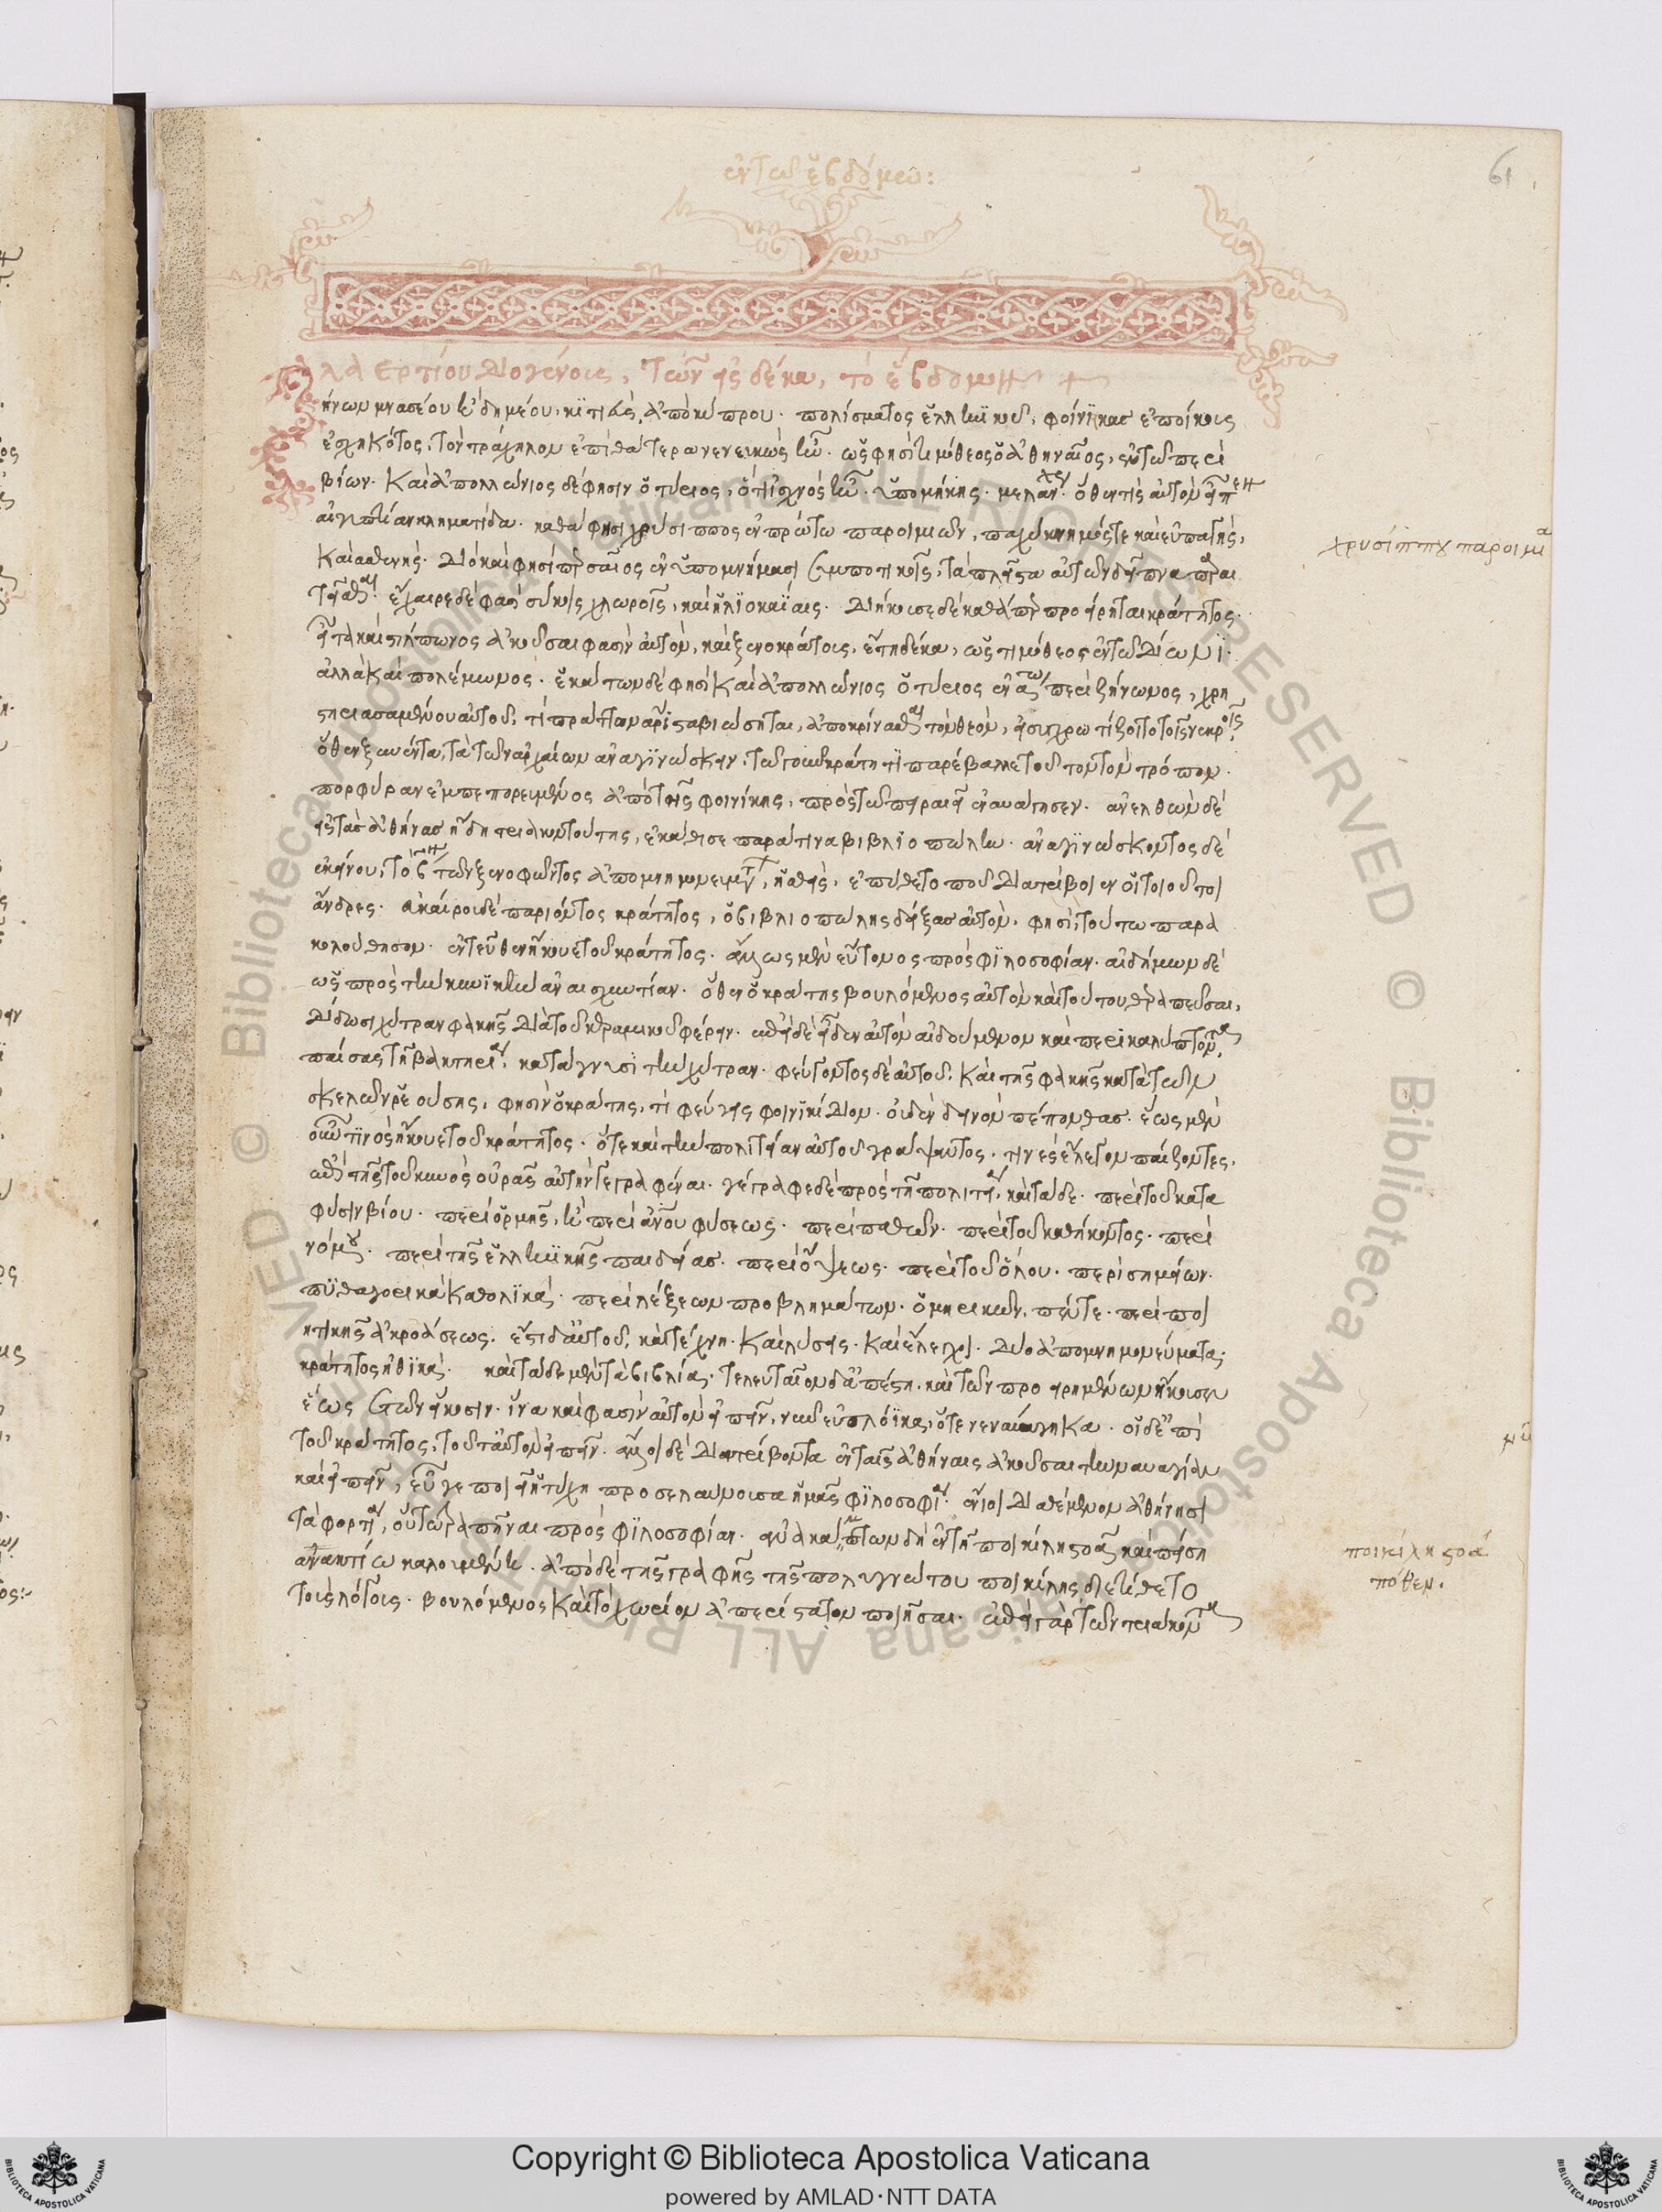 ἐν τῷ ἑβδόμῳ:
61
λαερτίου διογένους, τῶν εἰς δέκα, τὸ ἕβδομον
ήνων μνασέου ἢ δημέου, κιτιεὺς ἀπὸ κύπρου. πολίσματος ἑλληνικοῦ, φοίνικας ἐποίκους
ἐσχηκότος, τὸν τράχηλον ἐπὶ θάτερα νενευκὼς ἦν. ὥς φησι τιμόθεος ὁ ἀθηναῖος, ἐν τῶ περὶ
βίων. καὶ ἀπολλώνιος δέ φησιν ὁ τύριος, ὅτι ἰσχνὸς ἦν. ὑπομήκης. μελάγχρους. ὅθεν τὶς αὐτὸν εἶπεν
αἰγυπτίαν κληματίδα. καθά φησι χρύσιππος ἐν πρώτω παροιμιῶν, παχύκνημός τε καὶ εὐπαγής,
χρυσίππου παροιμία
καὶ ἀσθενής. διὸ καί φησι περσαῖος ἐν ὑπομνήμασι συμποτικοῖς, τὰ πλεῖστα αὐτῶν δεῖπνα παραι
τεῖσθαι. ἔχαιρε δέ φασι σύκοις χλωροῖς, καὶ ἡλιοκαΐαις. διήκουσε δὲ καθάπερ προείρηται κράτητος.
εἶτα καὶ στίλπωνος ἀκοῦσαι φασὶν αὐτὸν, καὶ ξενοκράτους, ἔτη δέκα, ὡς τιμόθεος ἐν τῶ δίωνι.
ἀλλὰ καὶ πολέμωνος. ἑκάτων δέ φησι καὶ ἀπολλώνιος ὁ τύριος ἐν πρώτω περὶ ζήνωνος, χρη
στηριασαμένου αὐτοῦ, τί πράττων ἄριστα βιώσεται, ἀποκρίνασθαι τὸν θεὸν, εἰ συγχρωτίζοιτο τοῖς νεκροῖς.
ὅθεν ξυνέντα, τὰ τῶν ἀρχαίων ἀναγινώσκειν. τῶ οὖν κράτητι παρέβαλε τοῦτον τὸν τρόπον.
πορφύραν ἐμπεπορευμένος ἀπὸ τῆς φοινίκης, πρὸς τῶ πειραιεῖ ἐναυάγησεν. ἀνελθὼν δὲ
εἰς τὰς ἀθήνας ἤδη τριακοντούτης, ἐκάθισε παρά τινα βιβλιοπώλην. ἀναγινώσκοντος δὲ
ἐκείνου, τὸ δεύτερον τῶν ξενοφῶντος ἀπομνημονευμάτων, ἡσθεὶς, ἐπύθετο ποῦ διατρίβοιεν οἱ τοιοῦτοι
ἄνδρες. εὐκαίρως δὲ παριόντος κράτητος, ὁ βιβλιοπώλης δείξας αὐτὸν, φησὶ, τούτω παρα
κολούθησον. ἐντεῦθεν ἤκουε τοῦ κράτητος. ἄλλως μὲν εὔτονος πρὸς φιλοσοφίαν. αἰδήμων δὲ
ὡς πρὸς τὴν κυνικὴν ἀναισχυντίαν. ὅθεν ὁ κράτης βουλόμενος αὐτὸν καὶ τούτου θεραπεῦσαι,
δίδωσι χύτραν φακῆς διὰ τοῦ κεραμεικοῦ φέρειν. ἐπεὶ δὲ εἶδεν αὐτὸν αἰδούμενον καὶ περικαλύπτοντα,
παίσας τῇ βακτηρίᾳ, κατάγνυσι τὴν χύτραν. φεύγοντος δὲ αὐτοῦ, καὶ τῆς φακῆς κατὰ τῶν
σκελῶν ῥεούσης, φησὶν ὁ κράτης, τί φεύγεις φοινικίδιον. οὐδὲν δεινὸν πέπονθας. ἕως μὲν
οὖν τινὸς ἤκουε τοῦ κράτητος. ὅτε καὶ τὴν πολιτείαν αὐτοῦ γράψαντος. τινὲς ἔλεγον παίζοντες,
ἐπὶ τῆς τοῦ κυνὸς οὐρᾶς αὐτὴν γεγραφέναι. γέγραφε δὲ πρὸς τῇ πολιτείᾳ, καὶ τάδε. περὶ τοῦ κατὰ
φύσιν βίου. περὶ ὁρμῆς, ἢ περὶ ἀνθρώπου φύσεως. περὶ παθῶν. περὶ τοῦ καθήκοντος. περὶ
νόμου. περὶ τῆς ἑλληνικῆς παιδείας. περὶ ὄψεως. περὶ τοῦ ὅλου. περὶ σημείων.
πυθαγορικὰ καθολικά. περὶ λέξεων προβλημάτων. ὁμηρικῶν, πέντε. περὶ ποι
ητικῆς ἀκροάσεως. ἔστι δ' αὐτοῦ, καὶ τέχνη. καὶ λύσεις. καὶ ἔλεγχοι. δύο ἀπομνημονεύματα.
κράτητος ἠθικά. καὶ τάδε μὲν τὰ βιβλία. τελευταῖον δὲ ἀπέστη. καὶ τῶν προειρημένων ἤκουσεν
ἕως ἐτῶν εἴκοσιν. ἵνα καὶ φασὶν αὐτὸν εἰπεῖν, νῦν εὐπλόηκα, ὅτε νεναυάγηκα. οἱ δὲ ἐπὶ
τοῦ κράτητος, τοῦτ' αὐτὸν εἰπεῖν. ἄλλοι δὲ διατρίβοντα ἐν ταῖς ἀθήναις ἀκοῦσαι τὴν ναυαγίαν
καὶ εἰπεῖν, εὖ γε ποιεῖ ἡ τύχη προσελαύνουσα ἡμᾶς φιλοσοφίᾳ. ἔνιοι διαθέμενον ἀθήνησι
τὰ φορτία, οὕτω τραπῆναι πρὸς φιλοσοφίαν. ἀνακάμπτων δὴ ἐν τῇ ποικίλῃ στοᾷ καὶ πεισι
ποικίλη στοά
πόθεν.
ανακτίω καλουμένῃ. ἀπὸ δὲ τῆς γραφῆς τῆς πολυγνώτου ποικίλης διετίθετο
τοὺς λόγους. βουλόμενος καὶ τὸ χωρίον ἀπερίστατον ποιῆσαι. ἐπὶ γὰρ τῶν τριάκοντα
Copyright © Biblioteca Apostolica Vaticana
powered by AMLAD·NTT DATA